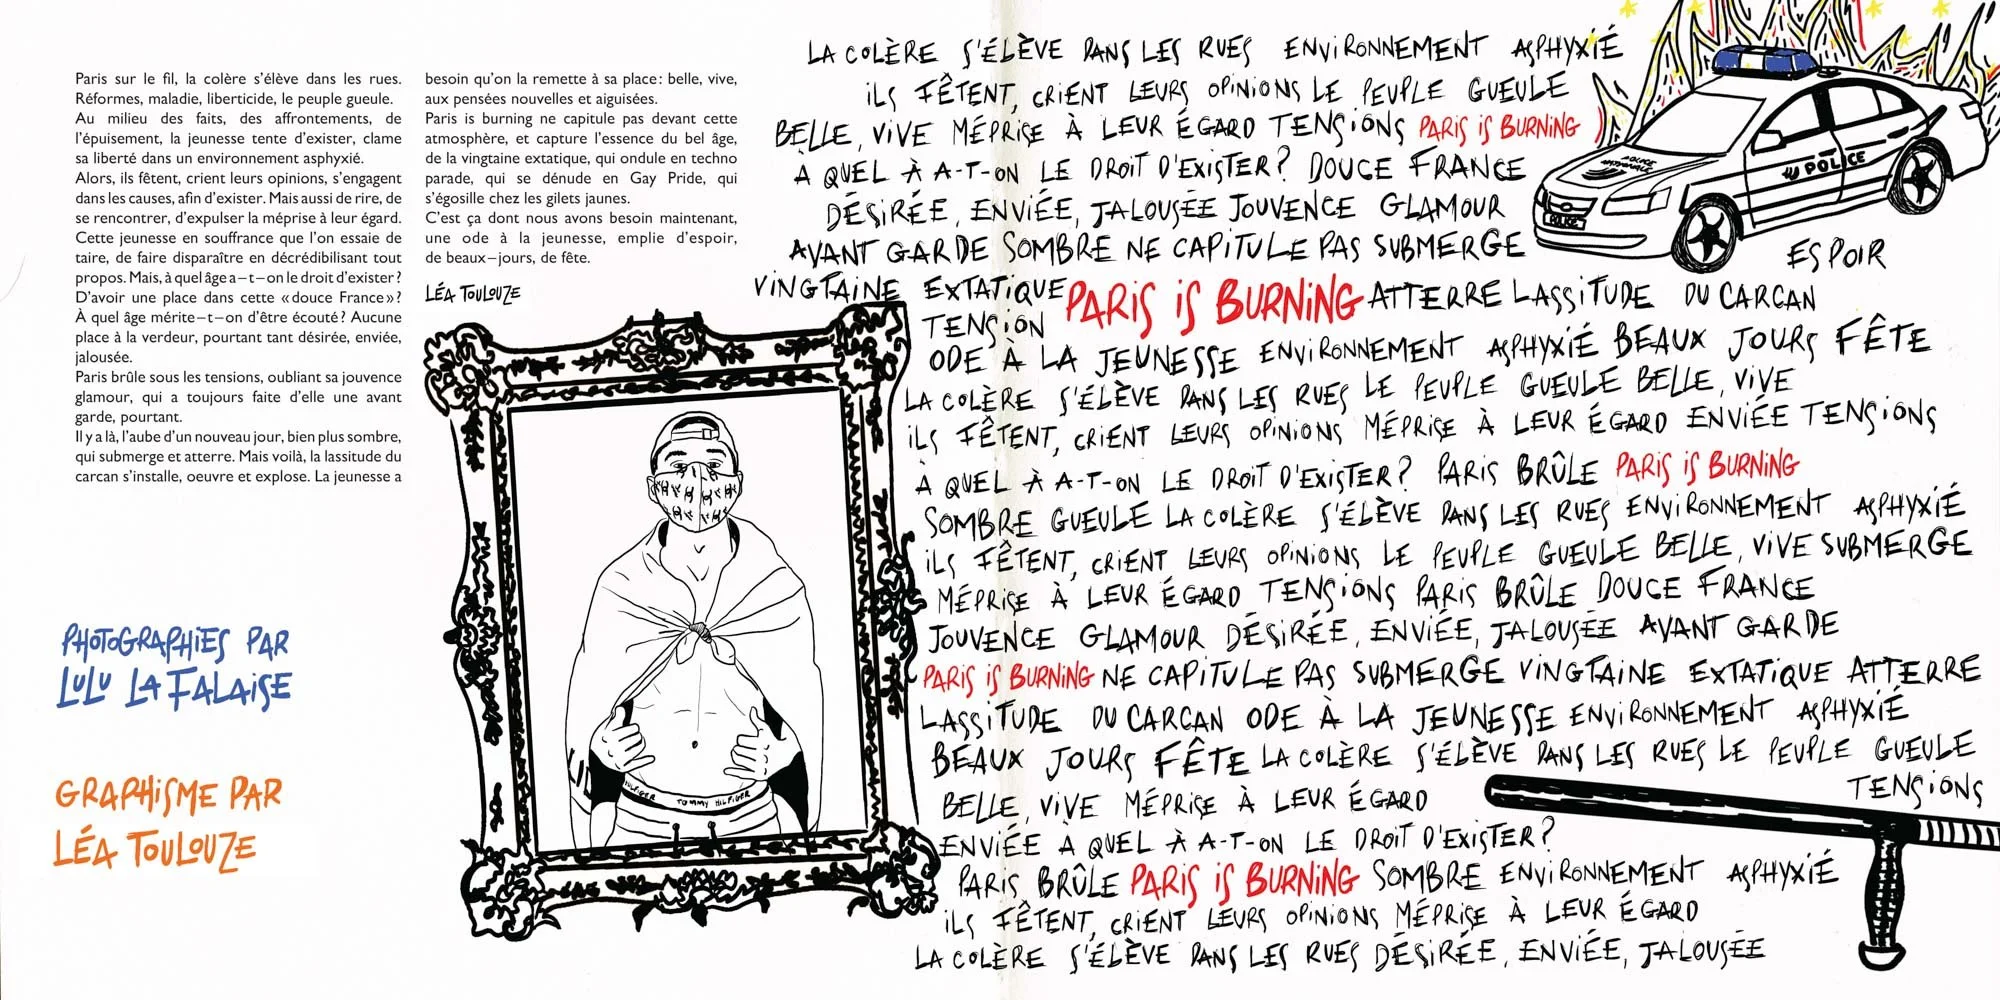 Paris sur le fil, la colère s'élève dans les rues.
Réformes, maladie, liberticide, le peuple gueule.
Au milieu des faits, des affrontements, de
l'épuisement, la jeunesse tente d'exister, clame
sa liberté dans un environnement asphyxié.
Alors, ils fêtent, crient leurs opinions, s'engagent
dans les causes, afin d'exister. Mais aussi de rire, de
se rencontrer, d'expulser la méprise à leur égard.
Cette jeunesse en souffrance que l'on essaie de
taire, de faire disparaître en décrédibilisant tout
propos. Mais, à quel âge a–t–on le droit d'exister ?
D'avoir une place dans cette « douce France » ?
À quel âge mérite–t–on d'être écouté ? Aucune
place à la verdeur, pourtant tant désirée, enviée,
jalousée.
Paris brûle sous les tensions, oubliant sa jouvence
glamour, qui a toujours faite d'elle une avant
garde, pourtant.
Il y a là, l'aube d'un nouveau jour, bien plus sombre,
qui submerge et atterre. Mais voilà, la lassitude du
carcan s'installe, oeuvre et explose. La jeunesse a
besoin qu'on la remette à sa place : belle, vive,
aux pensées nouvelles et aiguisées.
Paris is burning ne capitule pas devant cette
atmosphère, et capture l'essence du bel âge,
de la vingtaine extatique, qui ondule en techno
parade, qui se dénude en Gay Pride, qui
s'égosille chez les gilets jaunes.
C'est ça dont nous avons besoin maintenant,
une ode à la jeunesse, emplie d'espoir,
de beaux–jours, de fête.
LÉA TOULOUZE
PHOTOGRAPHIES PAR
LULU LA FALAISE
GRAPHISME PAR
LÉA TOULOUZE
HILFIGER TOMMY HILFIGER
LA COLÈRE S'ÉLÈVE DANS LES RUES ENVIRONNEMENT ASPHYXIÉ
ILS FÊTENT, CRIENT LEURS OPINIONS LE PEUPLE GUEULE
BELLE, VIVE MÉPRISE À LEUR ÉGARD TENSIONS PARIS IS BURNING
À QUEL À A-T-ON LE DROIT D'EXISTER ? DOUCE FRANCE
DÉSIRÉE, ENVIÉE, JALOUSÉE JOUVENCE GLAMOUR
AVANT GARDE SOMBRE NE CAPITULE PAS SUBMERGE
VINGTAINE EXTATIQUE PARIS IS BURNING ATTERRE LASSITUDE DU CARCAN
TENSION
ODE À LA JEUNESSE ENVIRONNEMENT ASPHYXIÉ BEAUX JOURS FÊTE
LA COLÈRE S'ÉLÈVE DANS LES RUES LE PEUPLE GUEULE BELLE, VIVE
ILS FÊTENT, CRIENT LEURS OPINIONS MÉPRISE À LEUR ÉGARD ENVIÉE TENSIONS
À QUEL À A-T-ON LE DROIT D'EXISTER ? PARIS BRÛLE PARIS IS BURNING
SOMBRE GUEULE LA COLÈRE S'ÉLÈVE DANS LES RUES ENVIRONNEMENT ASPHYXIÉ
ILS FÊTENT, CRIENT LEURS OPINIONS LE PEUPLE GUEULE BELLE, VIVE SUBMERGE
MÉPRISE À LEUR ÉGARD TENSIONS PARIS BRÛLE DOUCE FRANCE
JOUVENCE GLAMOUR DÉSIRÉE, ENVIÉE, JALOUSÉE AVANT GARDE
PARIS IS BURNING NE CAPITULE PAS SUBMERGE VINGTAINE EXTATIQUE ATTERRE
LASSITUDE DU CARCAN ODE À LA JEUNESSE ENVIRONNEMENT ASPHYXIÉ
BEAUX JOURS FÊTE LA COLÈRE S'ÉLÈVE DANS LES RUES LE PEUPLE GUEULE
TENSIONS
BELLE, VIVE MÉPRISE À LEUR ÉGARD
ENVIÉE À QUEL À A-T-ON LE DROIT D'EXISTER ?
PARIS BRÛLE PARIS IS BURNING SOMBRE ENVIRONNEMENT ASPHYXIÉ
ILS FÊTENT, CRIENT LEURS OPINIONS MÉPRISE À LEUR ÉGARD
LA COLÈRE S'ÉLÈVE DANS LES RUES DÉSIRÉE, ENVIÉE, JALOUSÉE
POLICE
POLICE
POLICE
ESPOIR